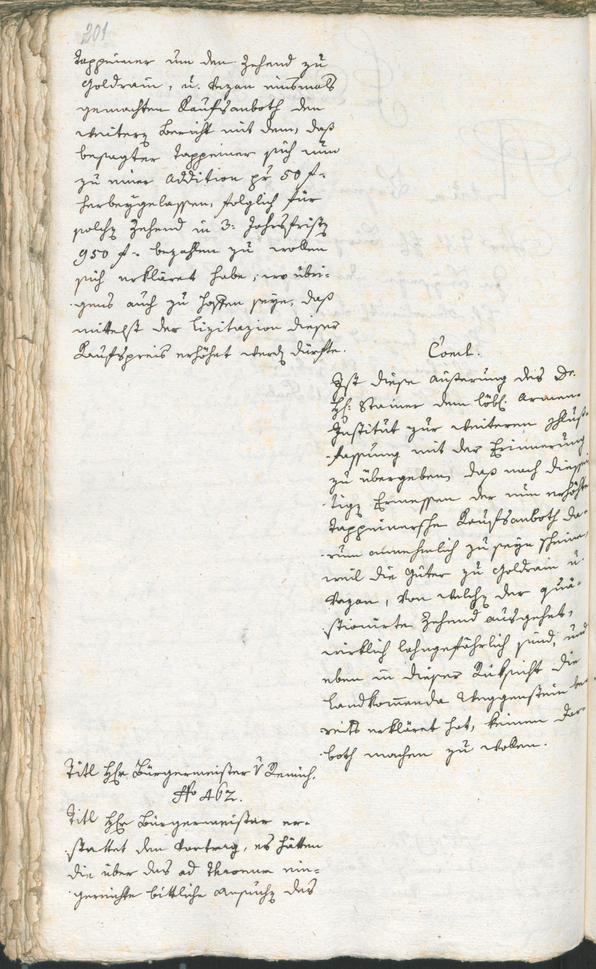 201
Tappeiner um den Zehend zu
Goldrain, u. Vezan einsmals
gemachten Kaufsanboth den
weitern Bericht mit dem, daß
besagter Tappeiner sich nun
zu einer Addition pr 50 f.
herbeygelassen, folglich für
solchen Zehend in 3. Jahrsfristen
950 f. bezahlen zu wollen
sich erkläret habe; wo übri-
gens auch zu hoffen seye, daß
mittelst der Lizitazion dieser
Kaufspreis erhöhet werden dürfte.
Concl.
Ist diese Äußerung des
H: Stainer dem löbl. Armen-
Institut zur weiteren Schluß-
fassung mit der Erinnerung
zu übergeben, daß nach diessei-
tigen Ermessen der nun erhöhte
Tappeinersche Kaufsanboth da-
rum annehmlich zu seyn scheine,
weil die Güter zu Goldrain u.
Vezan, von welchen der quä-
stionirte Zehend ausgehet,
wirklich lahngefährlich sind, und
eben in dieser Rüksicht die
Landkommenda Weggenstein be-
reits erkläret hat, keinen Dar-
both machen zu wollen.
Titl Hr Bürgermeister v Remich.
No 462.
Titl Hr Bürgermeister er-
stattet den Vortrag, es hätten
die über das ad Thronum ein-
gereichte bittliche Ansuchen des